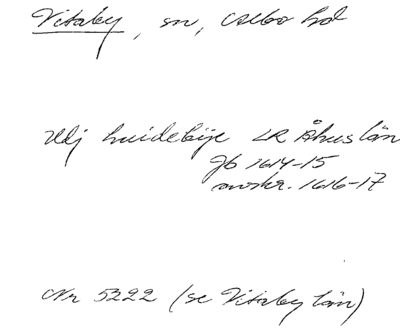 Vitaby, sn, Albo hd
Hvidebÿe LR Åhus län
Jb 1614-15
avskr. 1616-17
Nr 5222 (se Vitaby län)